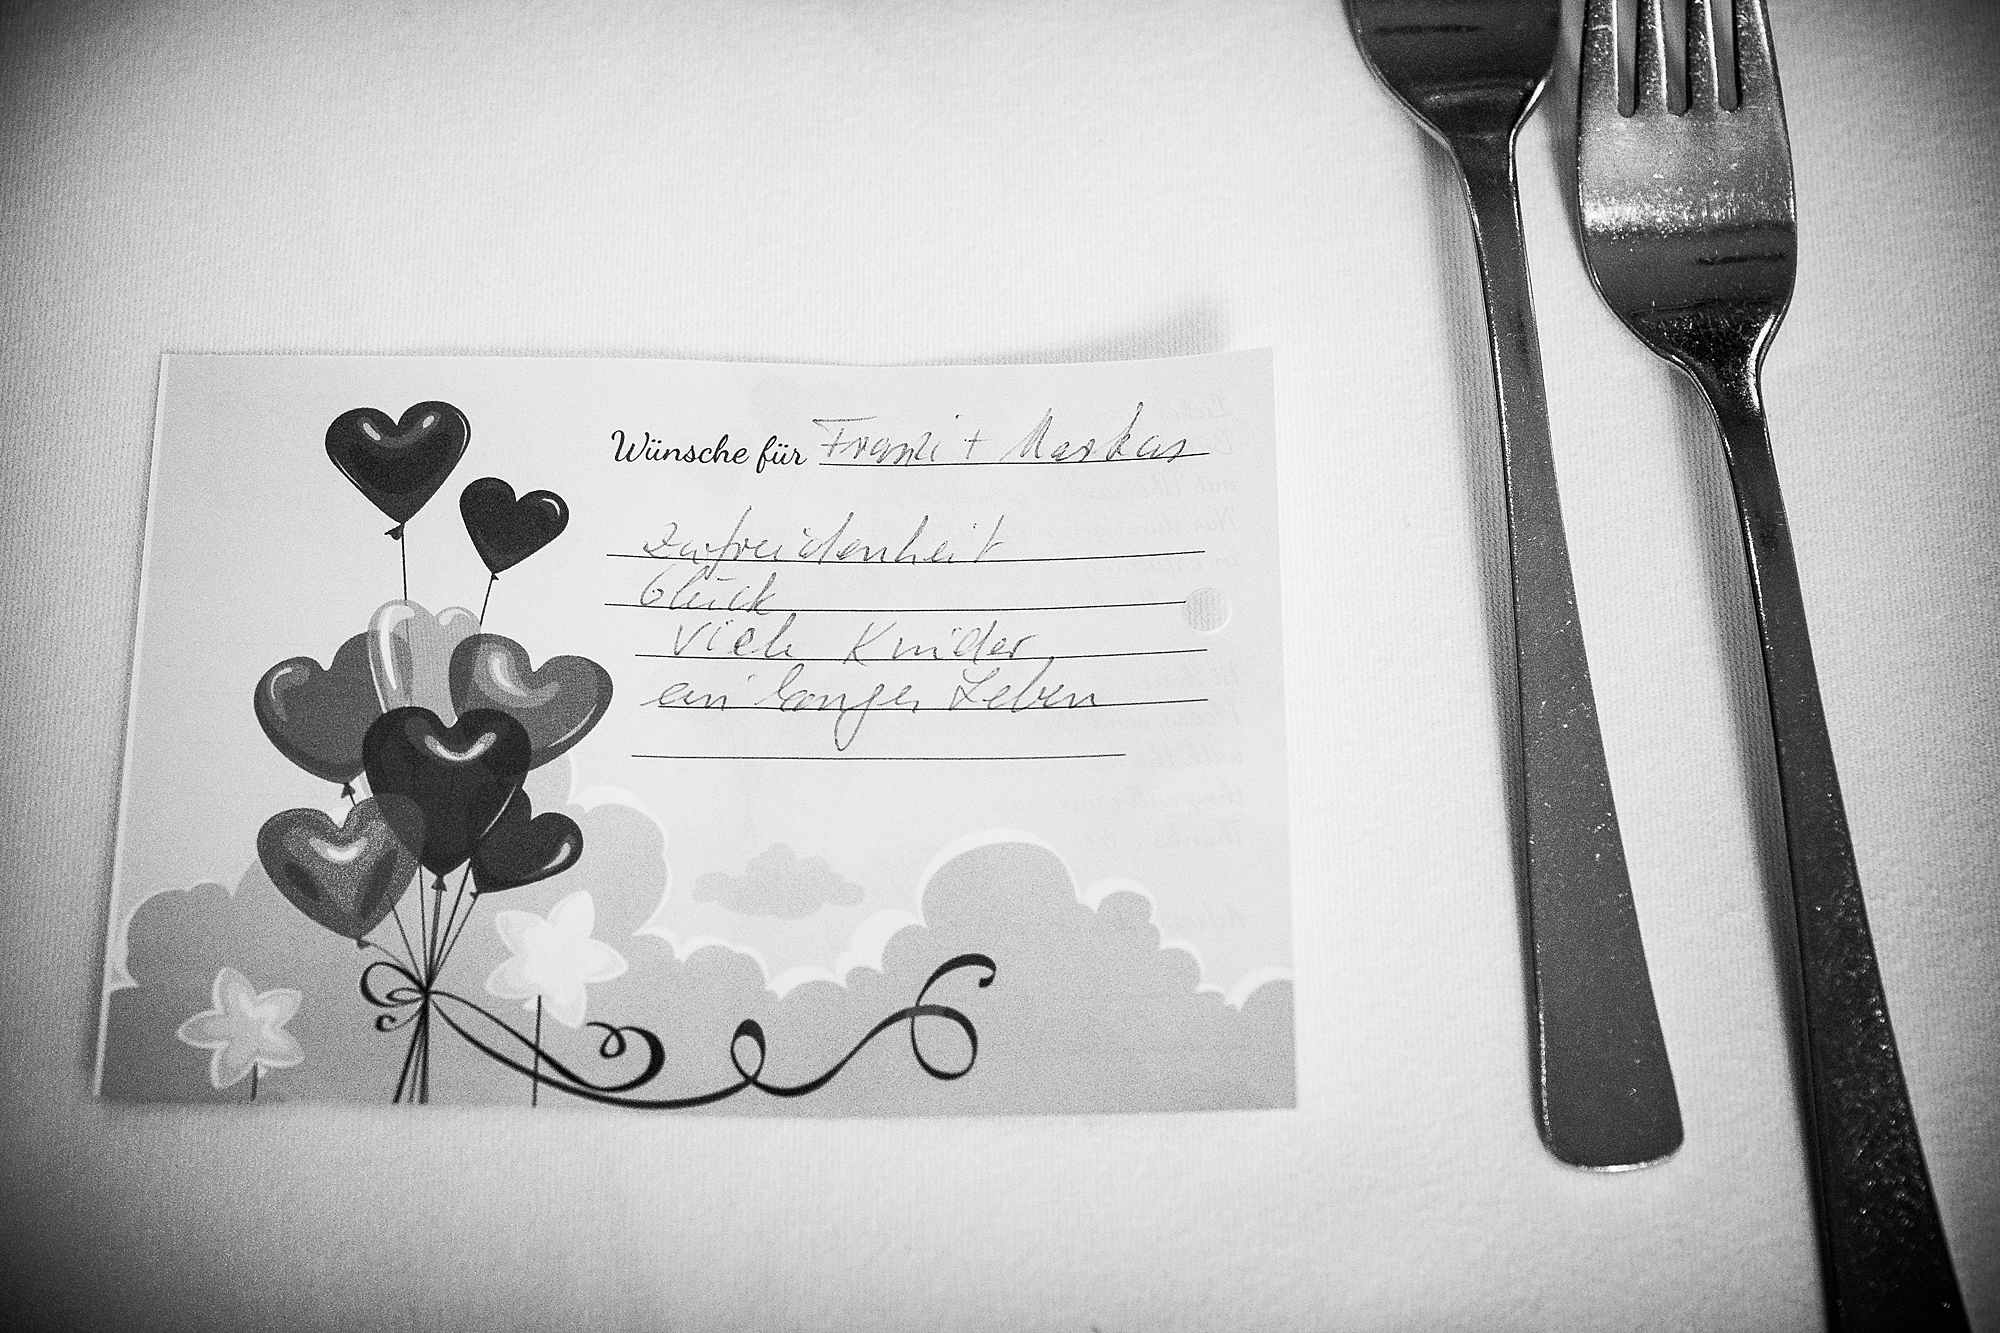 Wünsche für Franzi + Markus
Zufriedenheit
Glück
viele Kinder
ein langes Leben